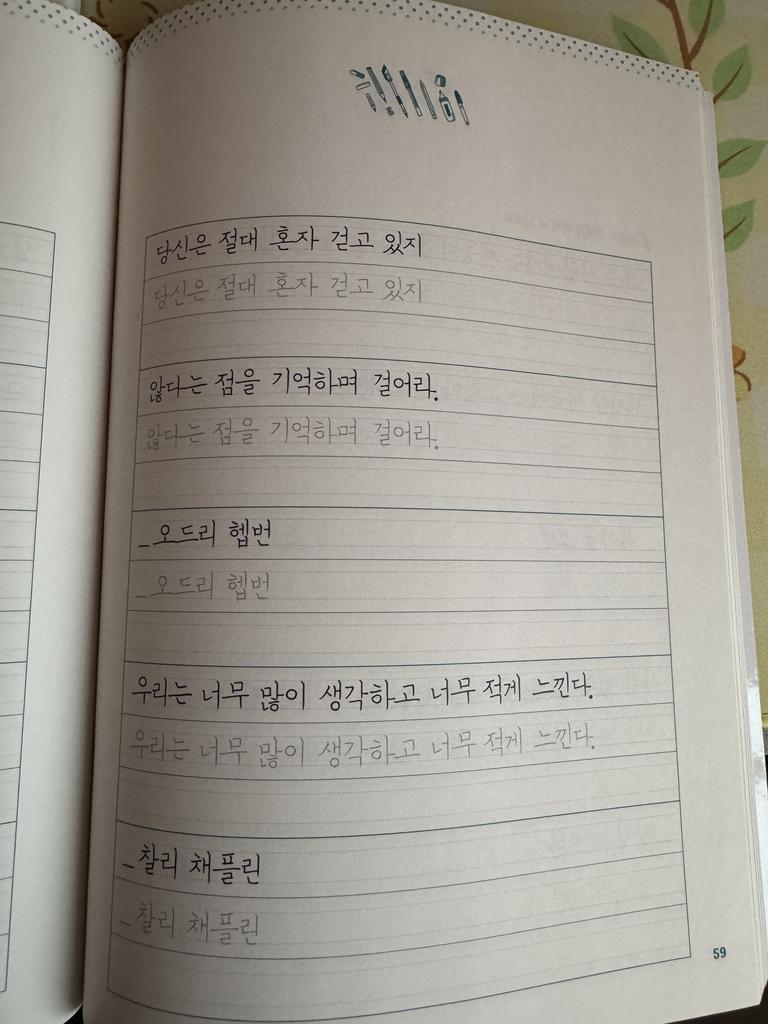 당신은 절대 혼자 걷고 있지
당신은 절대 혼자 걷고 있지
않다는 점을 기억하며 걸어라.
않다는 점을 기억하며 걸어라.
_오드리 헵번
_오드리 헵번
우리는 너무 많이 생각하고 너무 적게 느낀다.
우리는 너무 많이 생각하고 너무 적게 느낀다.
_찰리 채플린
_찰리 채플린
59